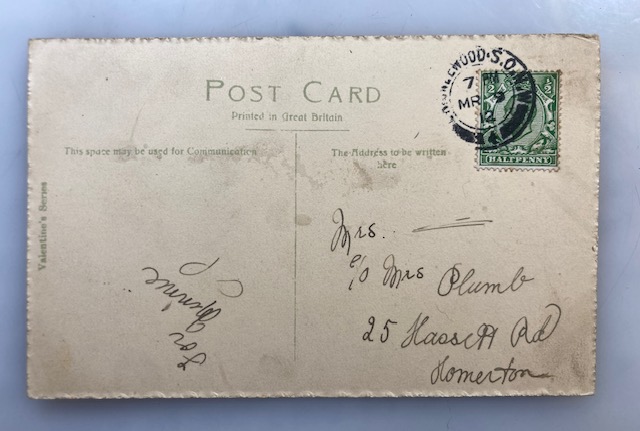 POST CARD
Printed in Great Britain
This space may be used for Communication
The Address to be written
here
Valentine's Series
For
Minnie
P
Mrs.
c/o Mrs Plumb
25 Hassett Rd
Homerton
7
MR
12
½ ½
HALFPENNY